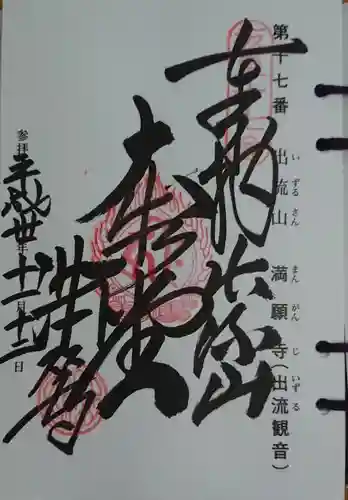 第十七番 出流山 満願寺(出流観音)
いずるさん まんがんじ いずる
奉拝 出流山
大悲殿
満願寺
参拝 平成卅年十一月十二日